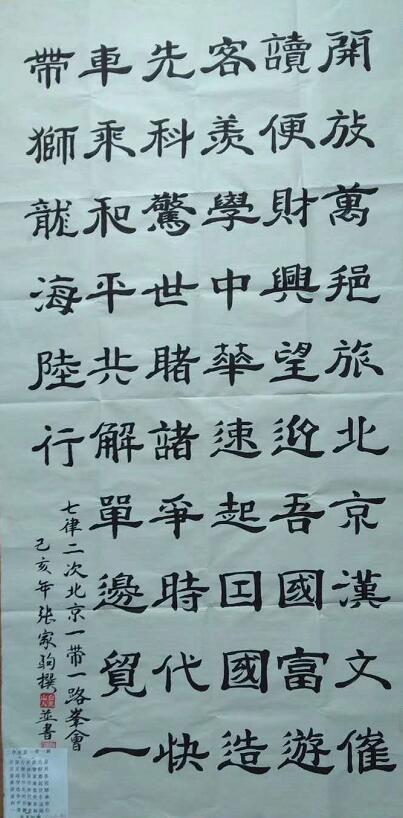 開放萬旅北京漢文催
讀便財興望迎吾國富遊
客羨學中華速起囯國造
先科驚世睹諸爭時代快
車乘和平共解單邊貿一
帶獅龍海陸行
七律二次北京一帶一路峯會
己亥年張家駒撰並書